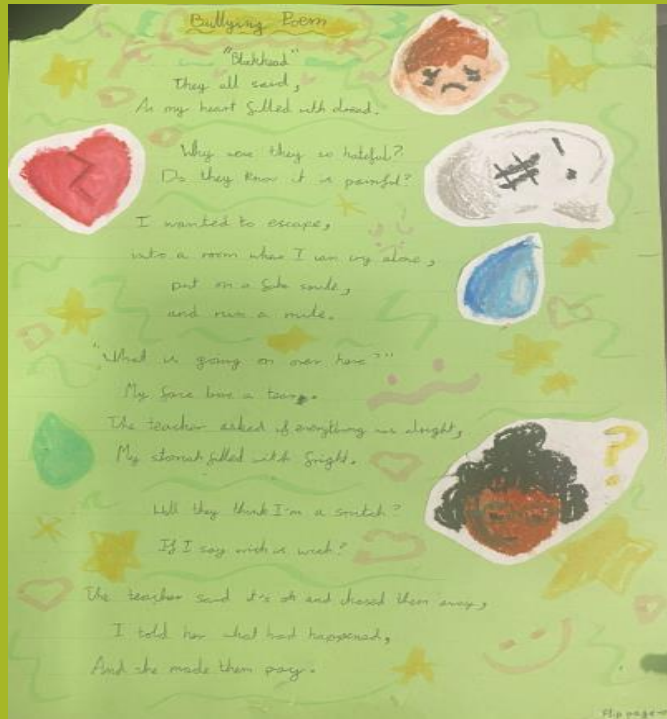 Bullying Poem
"Blockhead"
They all said,
As my heart filled with dread.
Why were they so hateful?
Do they know it is painful?
I wanted to escape,
into a room where I can cry alone,
put on a fake smile,
and run a mile.
"What is going on over here?"
My face bore a tear.
The teacher asked if everything was alright,
My stomach filled with fright.
Will they think I'm a snitch?
If I say wich is wich?
The teacher said it's ok and chased them away,
I told her what had happened,
And she made them pay.
Flip page